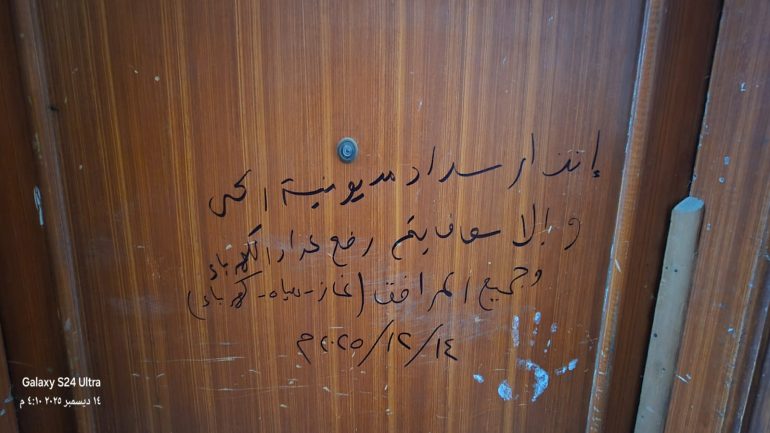 إنذار سداد مديونية الحي
و إلا سوف يتم رفع عداد الكهرباء
و جميع المرافق (غاز - مياه - كهرباء)
١٤/١٢/٢٠٢٥م
Galaxy S24 Ultra
١٤ ديسمبر ٢٠٢٥ ٤:١٠ م